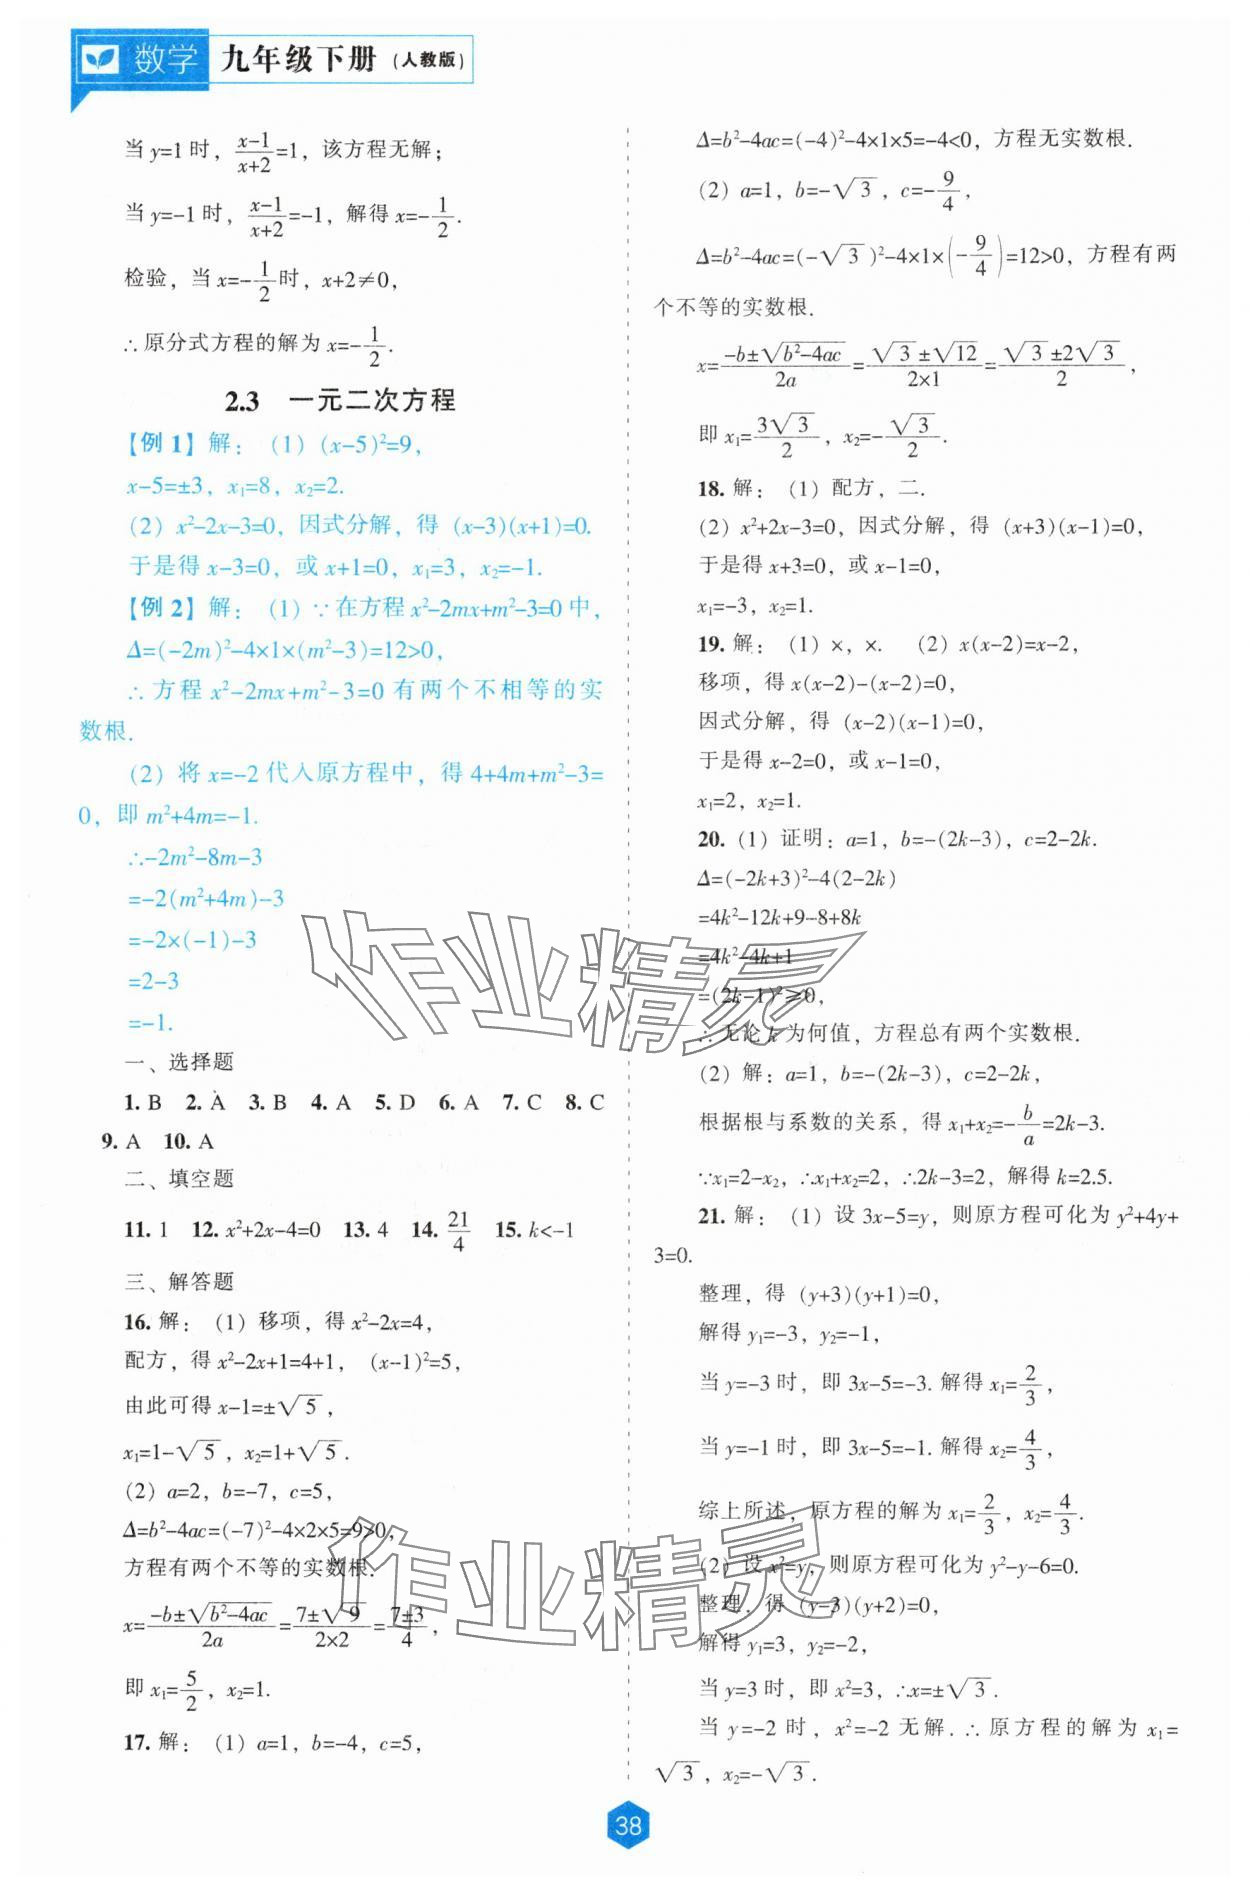 数学 九年级下册（人教版）
当 y=1 时，(x-1)/(x+2)=1，该方程无解；
当 y=-1 时，(x-1)/(x+2)=-1，解得 x=-1/2.
检验，当 x=-1/2时，x+2≠0，
∴原分式方程的解为 x=-1/2.
2.3 一元二次方程
【例 1】解：（1）(x-5)²=9，
x-5=±3，x₁=8，x₂=2.
（2）x²-2x-3=0，因式分解，得 (x-3)(x+1)=0.
于是得 x-3=0，或 x+1=0，x₁=3，x₂=-1.
【例 2】解：（1）∵在方程 x²-2mx+m²-3=0 中，
Δ=(-2m)²-4×1×(m²-3)=12>0，
∴方程 x²-2mx+m²-3=0 有两个不相等的实
数根.
（2）将 x=-2 代入原方程中，得 4+4m+m²-3=
0，即 m²+4m=-1.
∴-2m²-8m-3
=-2(m²+4m)-3
=-2×(-1)-3
=2-3
=-1.
一、选择题
1. B 2. A 3. B 4. A 5. D 6. A 7. C 8. C
9. A 10. A
二、填空题
11. 1 12. x²+2x-4=0 13. 4 14. 21/4 15. k<-1
三、解答题
16. 解：（1）移项，得 x²-2x=4，
配方，得 x²-2x+1=4+1，(x-1)²=5，
由此可得 x-1=±√5，
x₁=1-√5，x₂=1+√5.
（2）a=2，b=-7，c=5，
Δ=b²-4ac=(-7)²-4×2×5=9>0，
方程有两个不等的实数根.
x=(-b±√(b²-4ac))/2a=(7±√9)/(2×2)=(7±3)/4，
即 x₁=5/2，x₂=1.
17. 解：（1）a=1，b=-4，c=5，
Δ=b²-4ac=(-4)²-4×1×5=-4<0，方程无实数根.
（2）a=1，b=-√3，c=-9/4，
Δ=b²-4ac=(-√3)²-4×1×(-9/4)=12>0，方程有两
个不等的实数根.
x=(-b±√(b²-4ac))/2a=(√3±√12)/(2×1)=(√3±2√3)/2，
即 x₁=3√3/2，x₂=-√3/2.
18. 解：（1）配方，二.
（2）x²+2x-3=0，因式分解，得 (x+3)(x-1)=0，
于是得 x+3=0，或 x-1=0，
x₁=-3，x₂=1.
19. 解：（1）×，×. （2）x(x-2)=x-2，
移项，得 x(x-2)-(x-2)=0，
因式分解，得 (x-2)(x-1)=0，
于是得 x-2=0，或 x-1=0，
x₁=2，x₂=1.
20.（1）证明：a=1，b=-(2k-3)，c=2-2k.
Δ=(-2k+3)²-4(2-2k)
=4k²-12k+9-8+8k
=4k²-4k+1
=(2k-1)²≥0，
∴无论 k 为何值，方程总有两个实数根.
（2）解：a=1，b=-(2k-3)，c=2-2k，
根据根与系数的关系，得 x₁+x₂=-b/a=2k-3.
∵x₁=2-x₂，∴x₁+x₂=2，∴2k-3=2，解得 k=2.5.
21. 解：（1）设 3x-5=y，则原方程可化为 y²+4y+
3=0.
整理，得 (y+3)(y+1)=0，
解得 y₁=-3，y₂=-1，
当 y=-3 时，即 3x-5=-3. 解得 x₁=2/3，
当 y=-1 时，即 3x-5=-1. 解得 x₂=4/3，
综上所述，原方程的解为 x₁=2/3，x₂=4/3.
（2）设 x²=y，则原方程可化为 y²-y-6=0.
整理，得 (y-3)(y+2)=0，
解得 y₁=3，y₂=-2，
当 y=3 时，即 x²=3，∴x=±√3.
当 y=-2 时，x²=-2 无解. ∴原方程的解为 x₁=
√3，x₂=-√3.
作业精灵
作业精灵
38